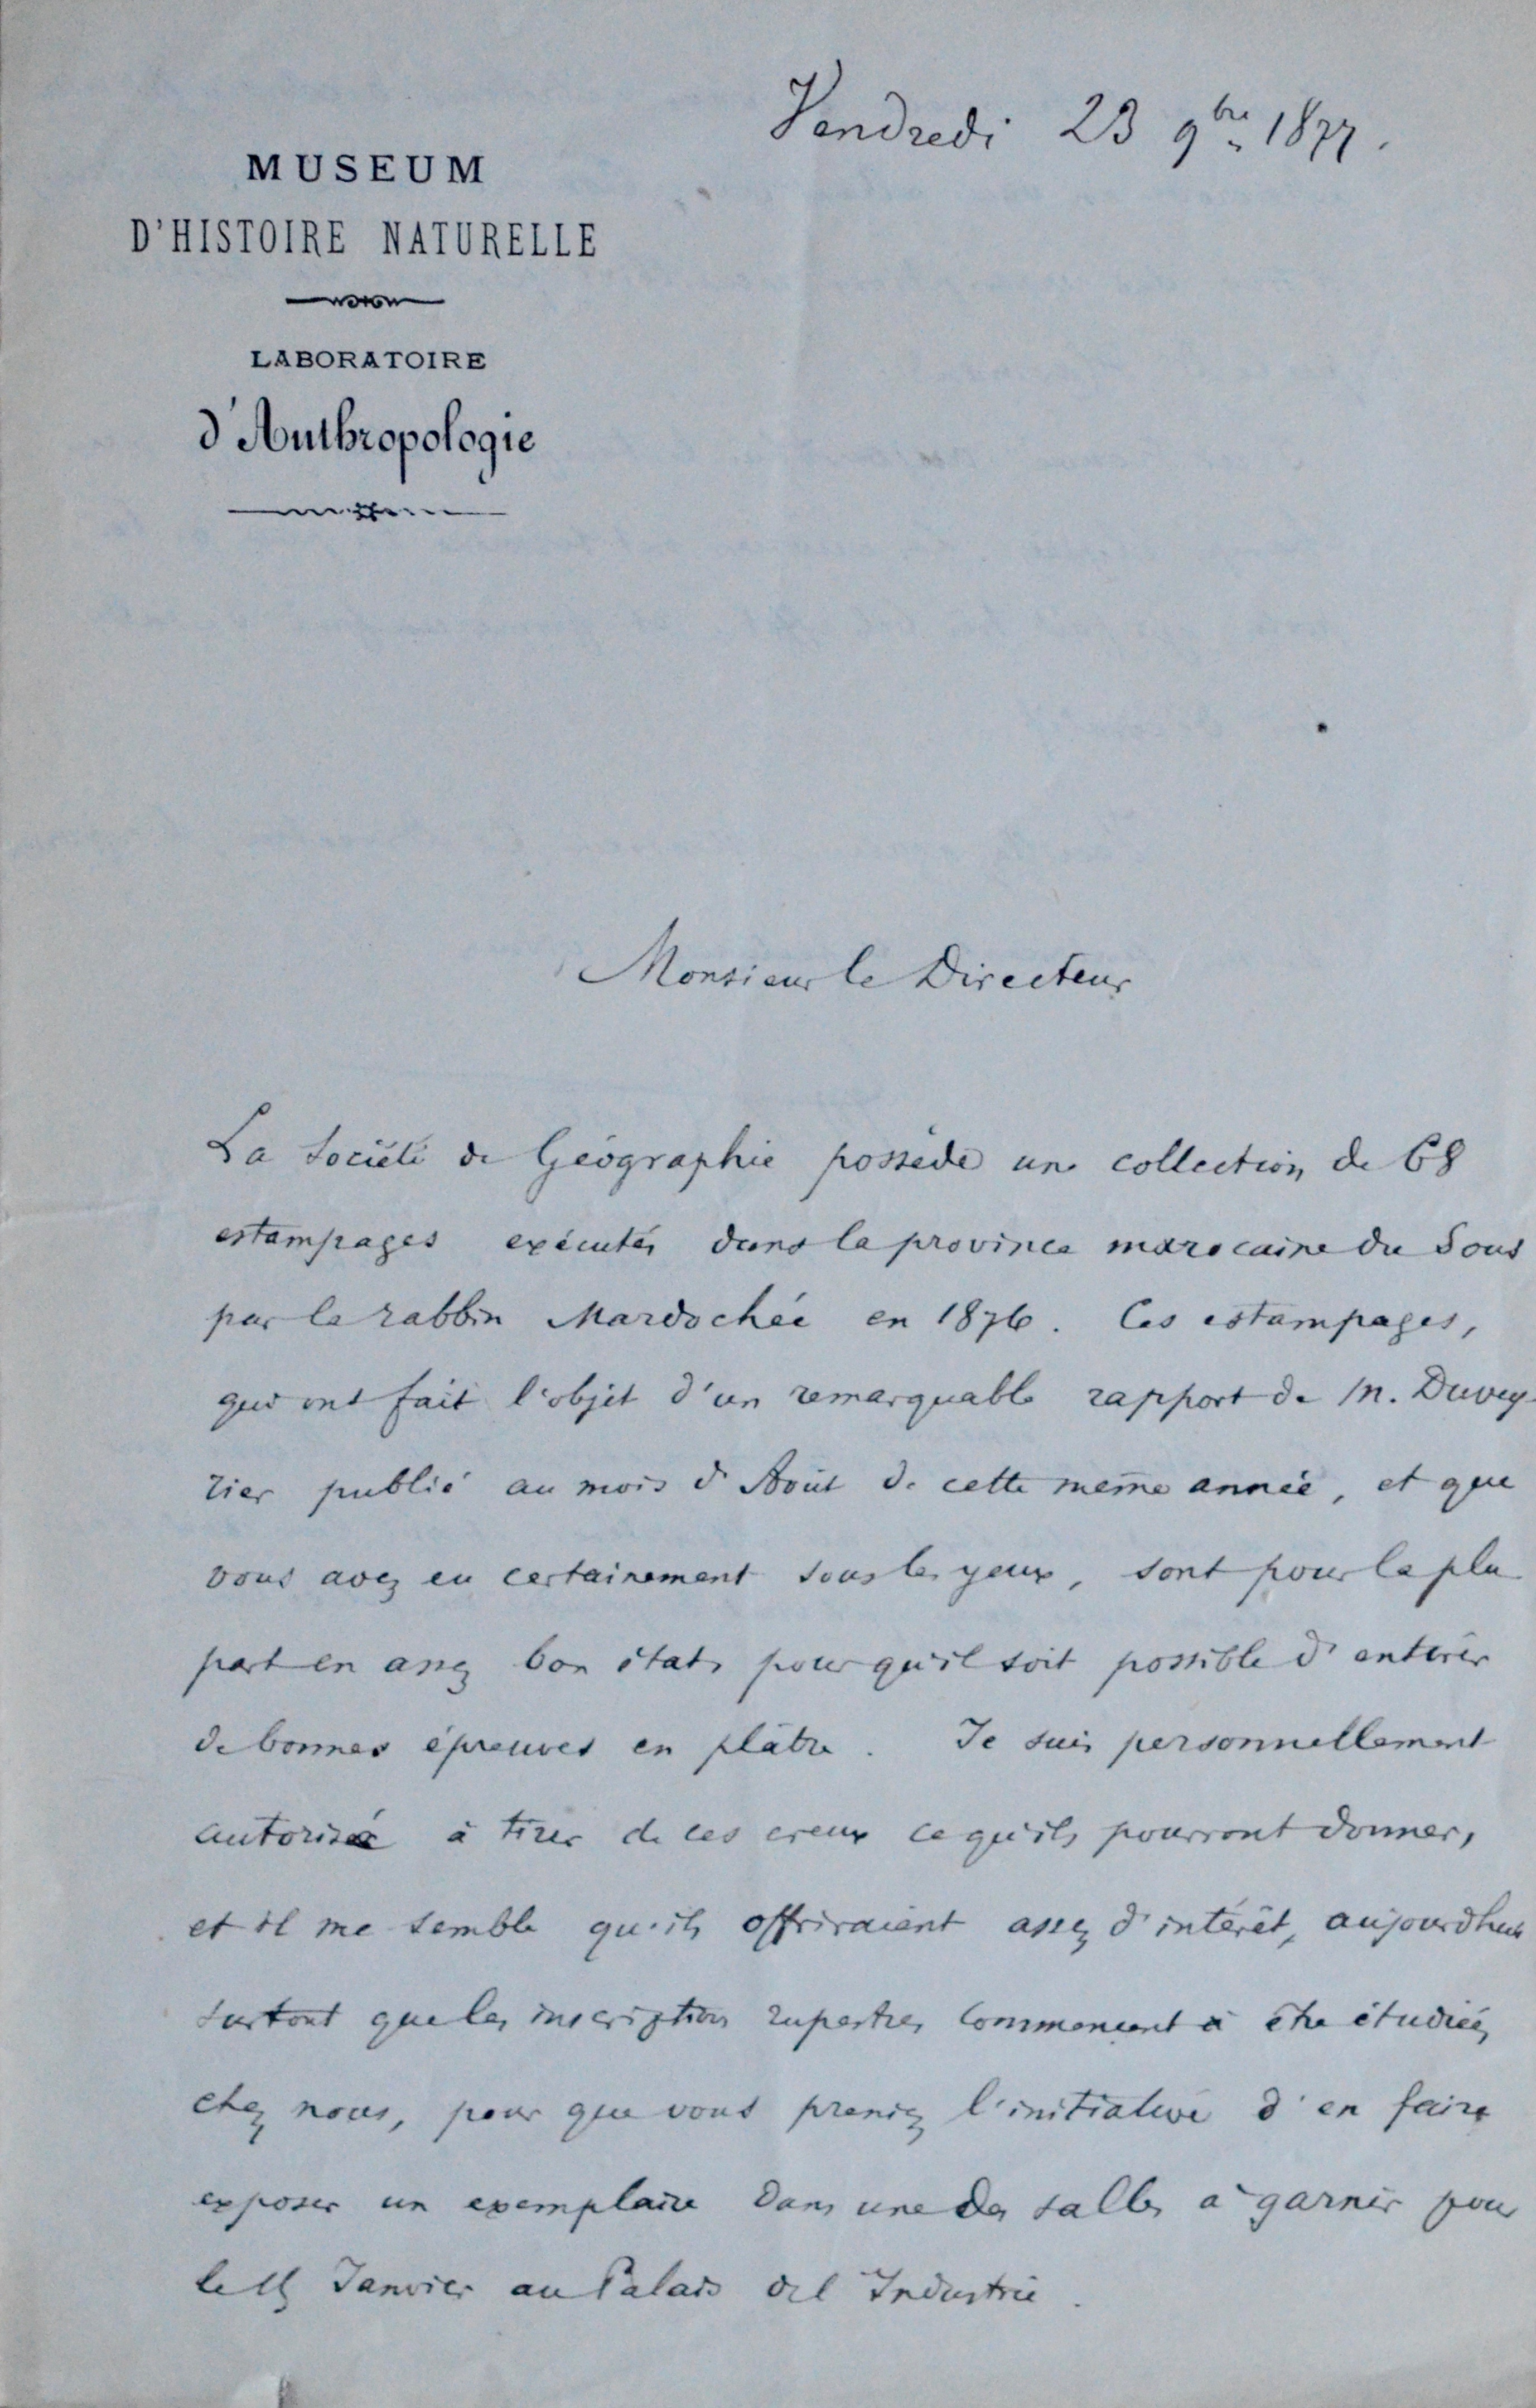 Vendredi 23 9bre 1877.
MUSEUM
D'HISTOIRE NATURELLE
LABORATOIRE
d'Anthropologie
Monsieur le Directeur
La Société de Géographie possède une collection de 68
estampages exécutés dans la province marocaine du Sous
par le rabbin Mardochée en 1876. Ces estampages,
qui ont fait l'objet d'un remarquable rapport de M. Duvey-
rier publié au mois d'Août de cette même année, et que
vous avez eu certainement sous les yeux, sont pour la plu
part en assez bon état, pour qu'il soit possible d'en tirer
de bonnes épreuves en plâtre. Je suis personnellement
autorisé à tirer de ces creux ce qu'ils pourront donner,
et il me semble qu'ils offriraient assez d'intérêt, aujourd'hui
surtout que les inscriptions rupestres commencent à être étudiées
chez nous, pour que vous preniez l'initiative d'en faire
exposer un exemplaire dans une des salles à garnir pour
le Janvier au Palais de l'Industrie.